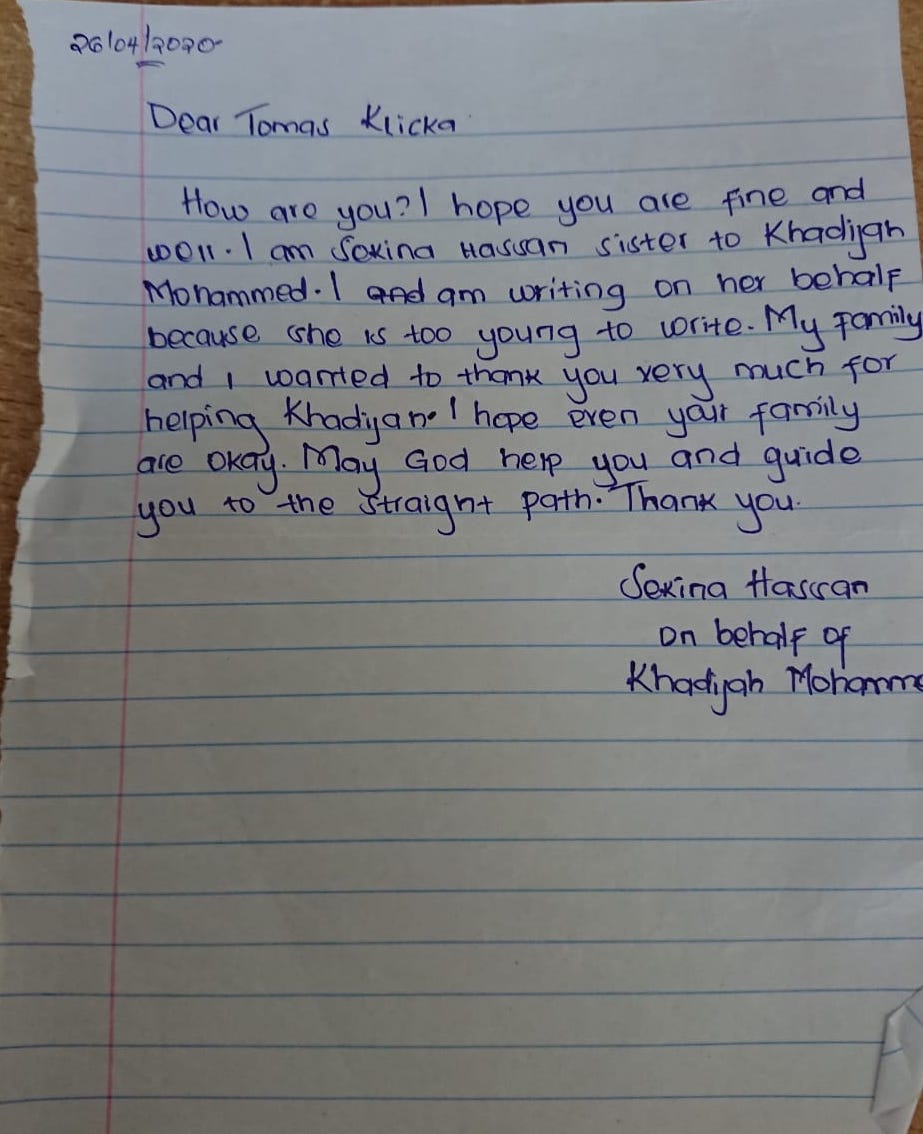 26/04/2020
Dear Tomas Klicka
How are you? I hope you are fine and
well. I am Sekina Hassan sister to Khadijah
Mohammed. I and am writing on her behalf
because she is too young to write. My family
and I wanted to thank you very much for
helping Khadijah. I hope even your family
are okay. May God help you and guide
you to the straight path. Thank you.
Sekina Hassan
On behalf of
Khadijah Mohamme